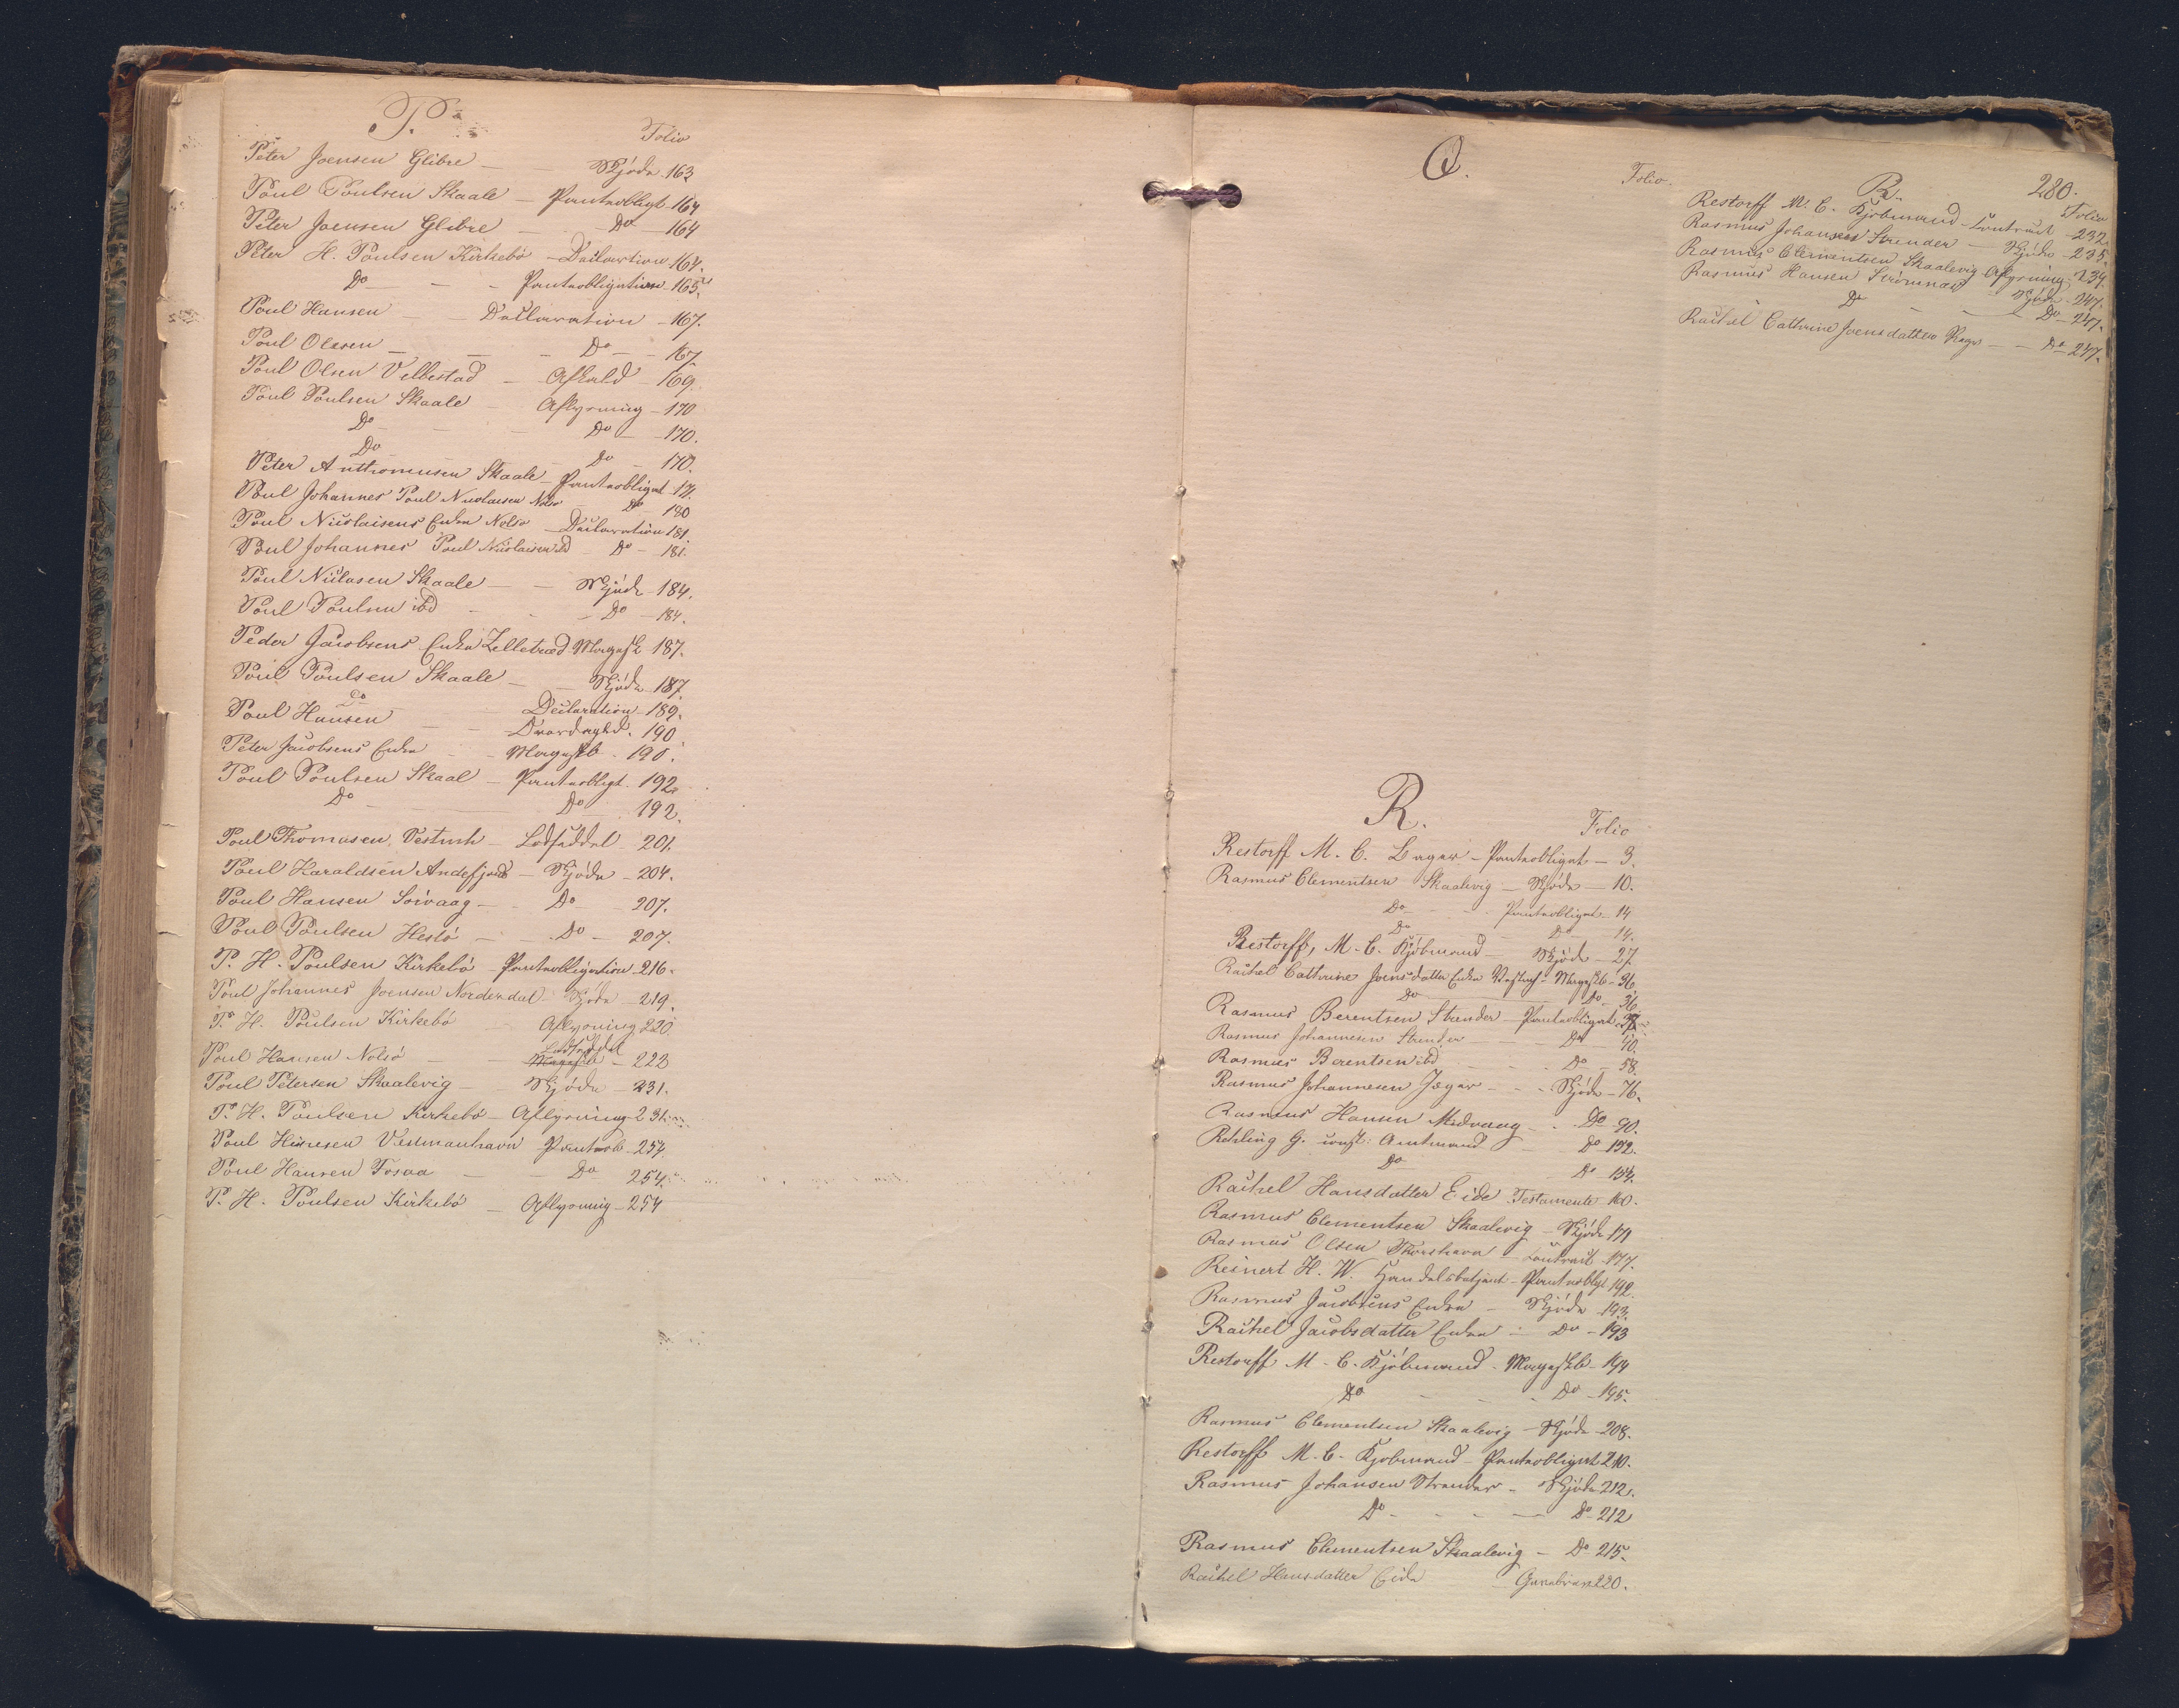 P.
Folio
Peter Joensen Glibre — Skjöde 163
Poul Poulsen Skaale — Pantobligt 164
Peter Joensen Glibre — Do — 164
Peter H. Poulsen Kirkebö — Declaration 164.
Do — Pantobligation 165.
Poul Hansen — Declaration — 167.
Poul Olesen — Do — 167
Poul Olsen Velbestad — Afkald — 169.
Poul Poulsen Skaale — Aflysning — 170
Do — Do — 170.
Do — Do — 170.
Peter Skaale — Pantobligat
Poul Johannes Poul Nicolaisen Nolsö Do 180
Poul Nicolaisens Enke Nolsö — Declaration 181.
Poul Johannes Poul Nicolaisen ibd Do — 181.
Poul Skaale — Skjöde — 184.
Poul Poulsen ibd — Do — 184.
Peder Jacobsens Enke 187.
Poul Poulsen Skaale — Skjöde 187.
do Declaration — 189.
Poul Hansen — 190
Peter Jacobsens Enke — 190.
Poul Poulsen Skaal — Pantobligt. 192.
Do — Do 192.
Poul Thomasen, — Lodseddel — 201.
Poul Haraldsen Andefjord — Skjöde — 204.
Poul Hansen Sörvaag — Do — 207.
Poul Poulsen Hestö — Do — 207.
P. H. Poulsen Kirkebö — Pantobligation — 216.
Poul Johannes Joensen Norderdal — Skjöde — 219.
P. H. Poulsen Kirkebö Aflysning 220
Poul Hansen Nolsö — Lodseddel — 223
Poul Petersen Skaalevig — Skjöde — 231.
P. H. Poulsen Kirkebö — Aflysning — 231.
Poul Vestmanhavn Pantob — 254.
Poul Hansen Fosaa — Do 254.
P. H. Poulsen Kirkebö — Aflysning — 254
Q.
Folio.
R.
Folio
Restorff M. C. — Pantobligat — 3.
Rasmus Clementsen Skaalevig — Skjöde — 10.
Do — Pantobligat — 14
Do — Do — 14.
Restorff, M. C. Kjöbmand — Skjöde — 27.
Rachel Cathrine Joensdatter Enke — 36
Do — Do — 36
Rasmus Berentsen Strender — Pantobligat
Rasmus Johannesen Strender — Do — 40.
Rasmus Berentsen ibd — Do — 58.
Rasmus Johannesen — Skjöde — 76.
Rasmus Hansen Midvaag — Do 90.
G. const: Amtmand — Do 132.
Do — Do 134.
Rachel Hansdatter Eide Testamente 160.
Rasmus Clementsen Skaalevig — Skjöde 171
Rasmus Olsen Thorshavn — Contract 177.
Reinert H. W. Handelsbetjent — Pantobligt 192.
Rasmus Jacobsens Enke — Skjöde 193.
Rachel Jacobsdatter Enke — Do — 193
Restorff M. C. Kjöbmand — 194
Do — Do — 195.
Rasmus Clementsen Skaalevig — Skjöde — 208.
Restorff M. C. Kjöbmand — Pantobligat 210.
Rasmus Johansen Strender — Skjöde 212.
Do — Do — 212
Rasmus Clementsen Skaalevig — Do — 215.
Rachel Hansdatter Eide 220.
280.
R.
Folio
Restorff M. C. Kjöbmand — Contract — 232.
Rasmus Johansen Strender — Skjöde — 235.
Rasmus Clementsen Skaalevig — Aflysning — 239.
Rasmus Hansen Strömnæs — Skjöde — 247.
Do — Do — 247.
Rachel Cathrine Joensdatter — Do — 247.